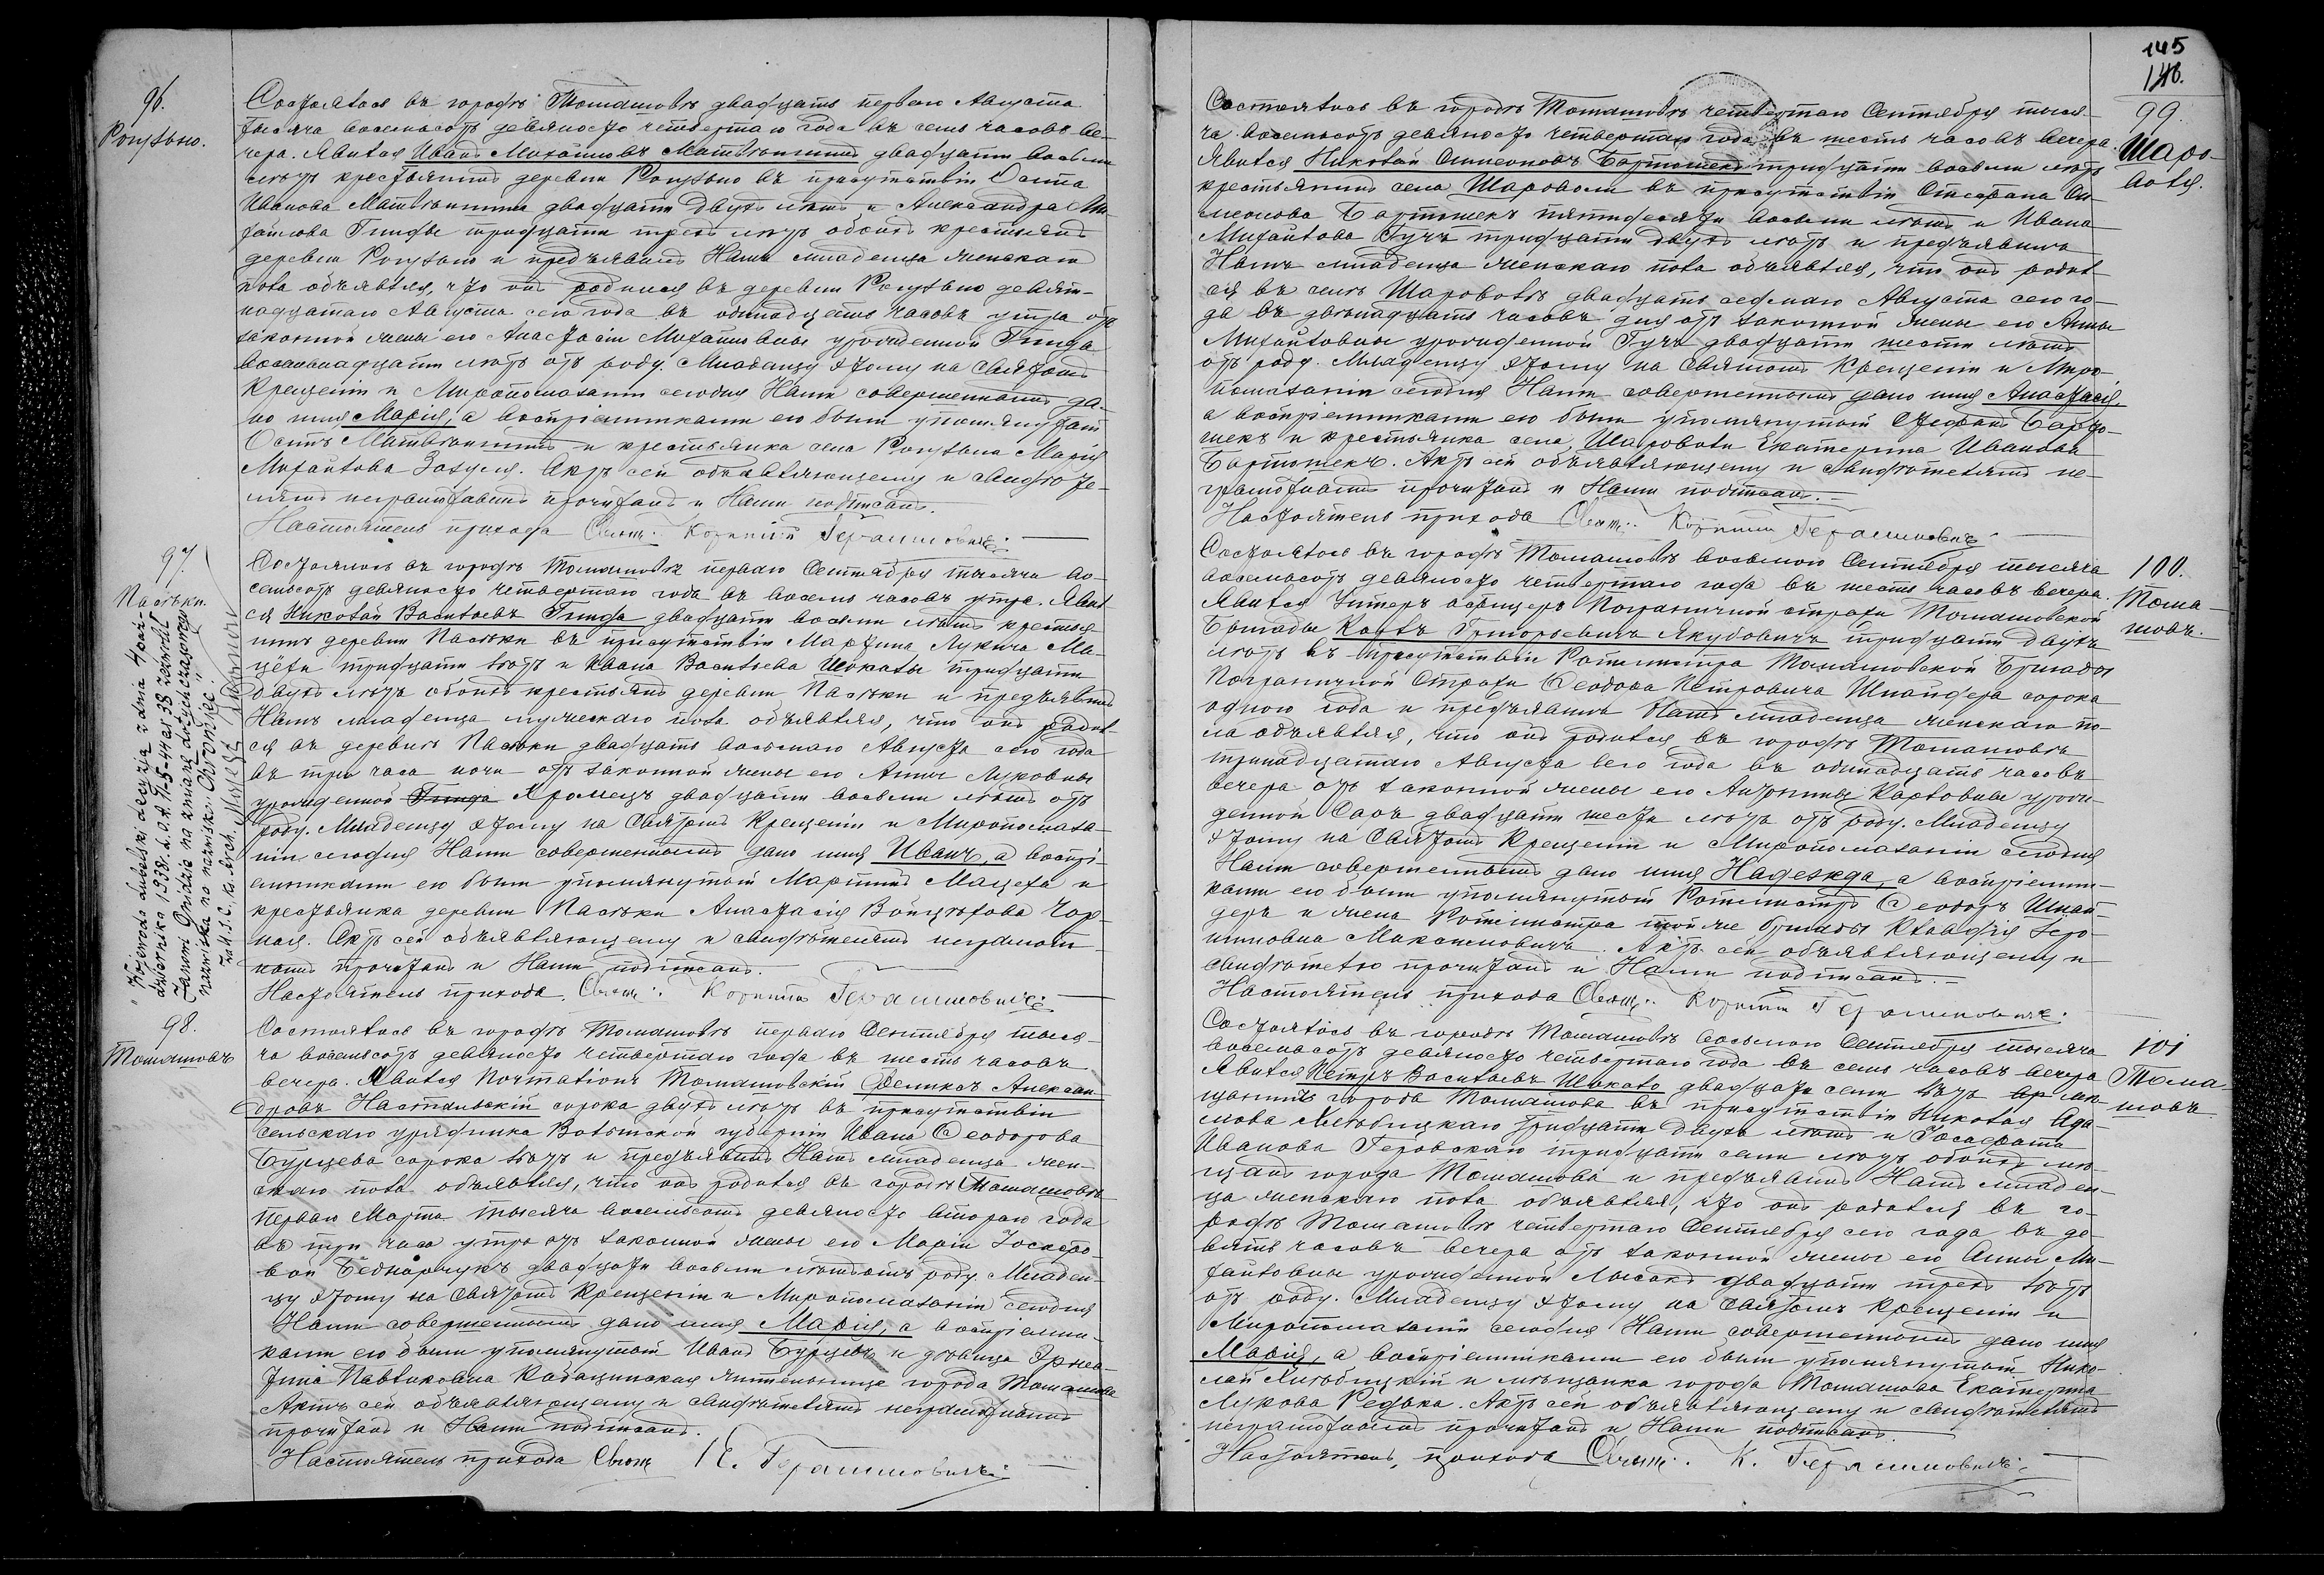 96.
Рогузьно.
Состоялось въ городѣ Томашовѣ двадцать перваго Августа
тысяча восемьсотъ девяносто четвертаго года въ семь часовъ ве-
чера. Явился Иванъ Михайловъ двадцати восьми
лѣтъ крестьянинъ деревни Рогузьно въ присутствіи Осипа
Иванова двадцати двухъ лѣтъ и Александра Ми-
хайлова Гниды тридцати трехъ лѣтъ обоихъ крестьянъ
деревни Рогузьно и предъявилъ Намъ младенца женскаго
пола объявляя, что онъ родился въ деревни Рогузьно девят-
надцатаго Августа сего года въ одинадцать часовъ утра отъ
законной жены его Анастасіи Михайловны урожденной Гнида
восемьнадцати лѣтъ отъ роду. Младенцу этому на Святомъ
Крещеніи и Миропомазаніи сегодня Нами совершенномъ да-
но имя Марія, а воспріемниками его были упомянутый
Осипъ и крестьянка села Рогузьна Марія
Михайлова Актъ сей объявляющему и свидѣте-
лямъ неграмотнымъ прочитанъ и Нами подписанъ.
Настоятель прихода Свящ. Корнилій Герасимовичъ
97.
Пасѣки.
"Wojewoda lubelski decyzją z dnia 4 paź-
dziernika 1938r. L.O.A. 15-44 zezwolił
Janowi Gnidzie na zmianę dotychczasowego
nazwiska na nazwisko "Chroniec".
Za U.S.C. Ks. Arch.
Состоялось въ городѣ Томашовѣ перваго Сентября тысяча во-
семьсотъ девяносто четвертаго года въ восемь часовъ утра. Явил-
ся Николай Васильевъ Гнида двадцати восьми лѣтъ крестья-
нинъ деревни Пасѣки въ присутствіи Мартина Лукича Ма-
цёхи тридцати лѣтъ и Ивана Васильева Шокалы тридцати
двухъ лѣтъ обоихъ крестьянъ деревни Пасѣки и предъявилъ
Намъ младенца мужескаго пола объявляя, что онъ родил-
ся въ деревнѣ Пасѣки двадцать восьмаго Августа сего года
въ три часа ночи отъ законной жены его Анны Луковны
урожденной Гнида Хромецъ двадцати восьми лѣтъ отъ
роду. Младенцу этому на Святомъ Крещеніи и Миропомаза-
ніи сегодня Нами совершенномъ дано имя Иванъ, а воспрі-
емниками его были упомянутый Мартинъ Мацеха и
крестьянка деревни Пасѣки Анастасія Войцѣхова Чор-
ная. Актъ сей объявляющему и свидѣтелямъ неграмот-
нымъ прочитанъ и Нами подписанъ.
Настоятель прихода Свящ. Корнилій Герасимовичъ
98.
Томашовъ
Состоялось въ городѣ Томашовѣ перваго Сентября тыся-
ча восемьсотъ девяносто четвертаго года въ шесть часовъ
вечера. Явился Почталіонъ Томашовскій Феликсъ Алексан-
дровъ Настальскій сорока двухъ лѣтъ въ присутствіи
сельскаго урядника Волынской губерніи Ивана Ѳеодорова
Бурцева сорока лѣтъ и предъявилъ Намъ младенца жен-
скаго пола объявляя, что онъ родился въ городѣ Томашовѣ
перваго Марта тысяча восемьсотъ девяносто втораго года
въ три часа утра отъ законной жены его Маріи
Беднарчукъ двадцати восьми лѣтъ отъ роду. Младен-
цу этому на Святомъ Крещеніи и Миропомазаніи сегодня
Нами совершенномъ дано имя Марія, а воспріемни-
ками его были упомянутый Иванъ Бурцевъ и дѣвица Эрнес-
тина Павликовна жительница города Томашова
Актъ сей объявляющему и свидѣтелямъ неграмотнымъ
прочитанъ и Нами подписанъ.
Настоятель прихода Свящ К. Герасимовичъ
145
146.
99.
Шаро-
воля.
Состоялось въ городѣ Томашовѣ четвертаго Сентября тыся-
ча восемьсотъ девяносто четвертаго года въ шесть часовъ вечера.
Явился Николай Симеоновъ Бартошекъ тридцати восьми лѣтъ
крестьянинъ села Шароволи въ присутствіи Стефана Си-
меонова Бартошекъ пятидесяти восьми лѣтъ и Ивана
Михайлова Гучъ тридцати двухъ лѣтъ и предъявилъ
Намъ младенца женскаго пола объявляя, что онъ родил-
ся въ селѣ Шароволѣ двадцать седмаго Августа сего го-
да въ двѣнадцать часовъ дня отъ законной жены его Анны
Михайловны урожденной Гучъ двадцати шести лѣтъ
отъ роду. Младенцу этому на Святомъ Крещеніи и Миро-
помазаніи сегодня Нами совершенномъ дано имя Анастасія,
а воспріемниками его были упомянутый Стефанъ Барто-
шекъ и крестьянка села Шароволи Екатерина Иванова
Бартошекъ. Актъ сей объявляющему и свидѣтелямъ не-
грамотнымъ прочитанъ и Нами подписанъ.
Настоятель прихода Свящ. Корнилій Герасимовичъ
100.
Тома-
шовъ.
Состоялось въ городѣ Томашовѣ восьмого Сентября тысяча
восемьсотъ девяносто четвертаго года въ шесть часовъ вечера.
Явился Унтеръ офицеръ Пограничной стражи Томашовской
Бригады Карлъ Григорьевичъ Якубовичъ тридцати двухъ
лѣтъ въ присутствіи Ротмистра Томашовской Бригады
Пограничной Стражи Ѳеодора Петровича Шнайдера сорока
одного года и предъявилъ Намъ младенца женскаго по-
ла объявляя, что онъ родился въ городѣ Томашовѣ
тринадцатаго Августа сего года въ одинадцать часовъ
вечера отъ законной жены его Антонины Карловны урож-
денной Саръ двадцати шести лѣтъ отъ роду. Младенцу
этому на Святомъ Крещеніи и Миропомазаніи сегодня
Нами совершенномъ дано имя Надежда, а воспріемни-
ками его были упомянутый Ротмистръ Ѳеодоръ Шнай-
деръ и жена Ротмистра той же бригады Клавдія Іеро-
нимовна Макаженовичъ. Актъ сей объявляющему и
свидѣтелю прочитанъ и Нами подписанъ.
Настоятель прихода Свящ. Корнилій Герасимовичъ.
101
Тома-
шовъ
Состоялось въ городѣ Томашовѣ восьмого Сентября тысяча
восемьсотъ девяносто четвертаго года въ семь часовъ вечера
Явился Петръ Васильевъ Шокало двадцати семи лѣтъ мѣ-
щанинъ города Томашова въ присутствіи Николая Ада-
мова Хлѣбицкаго тридцати двухъ лѣтъ и Іосафата
Иванова Геровскаго тридцати семи лѣтъ обоихъ мѣ-
щанъ города Томашова и предъявилъ Намъ младен-
ца женскаго пола объявляя, что онъ родился въ го-
родѣ Томашовѣ четвертаго Сентября сего года въ де-
вять часовъ вечера отъ законной жены его Анны Ми-
хайловны урожденной двадцати трехъ лѣтъ
отъ роду. Младенцу этому на Святомъ Крещеніи и
Миропомазаніи сегодня Нами совершенномъ дано имя
Марія, а воспріемниками его были упомянутый Нико-
лай Хлѣбицкій и мѣщанка города Томашова Екатерина
Лукова Редька. Актъ сей объявляющему и свидѣтелямъ
неграмотнымъ прочитанъ и Нами подписанъ.
Настоятель прихода Свящ. К. Герасимовичъ